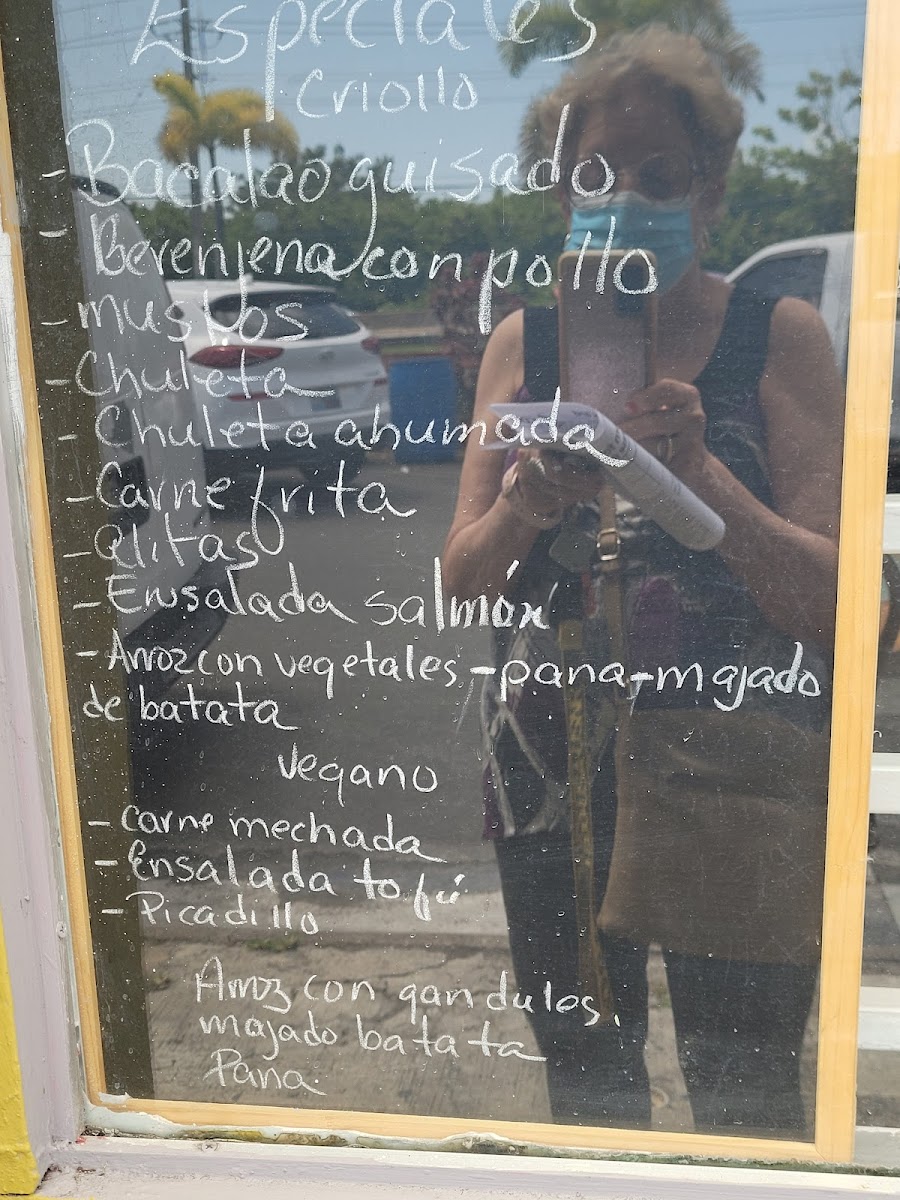 Especiales
Criollo
- Bacalao guisado
- Berenjena con pollo
- muslos
- Chuleta
- Chuleta ahumada
- Carne frita
- alitas
- Ensalada salmón
- Arroz con vegetales - pana - majado
de batata
vegano
- carne mechada
- Ensalada tofú
- Picadillo
Arroz con gandules,
majado batata
Pana.